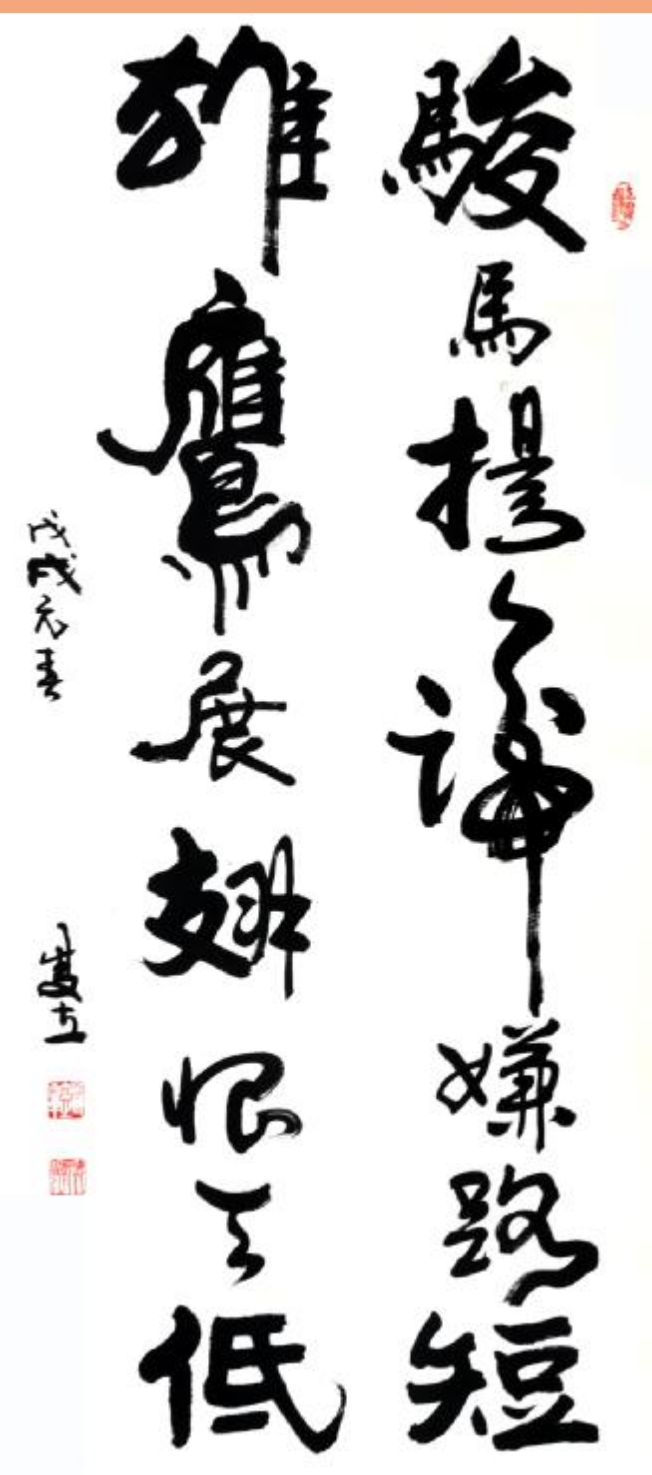 駿馬揚蹄嫌路短
雄鷹展翅恨天低
戊戌元春